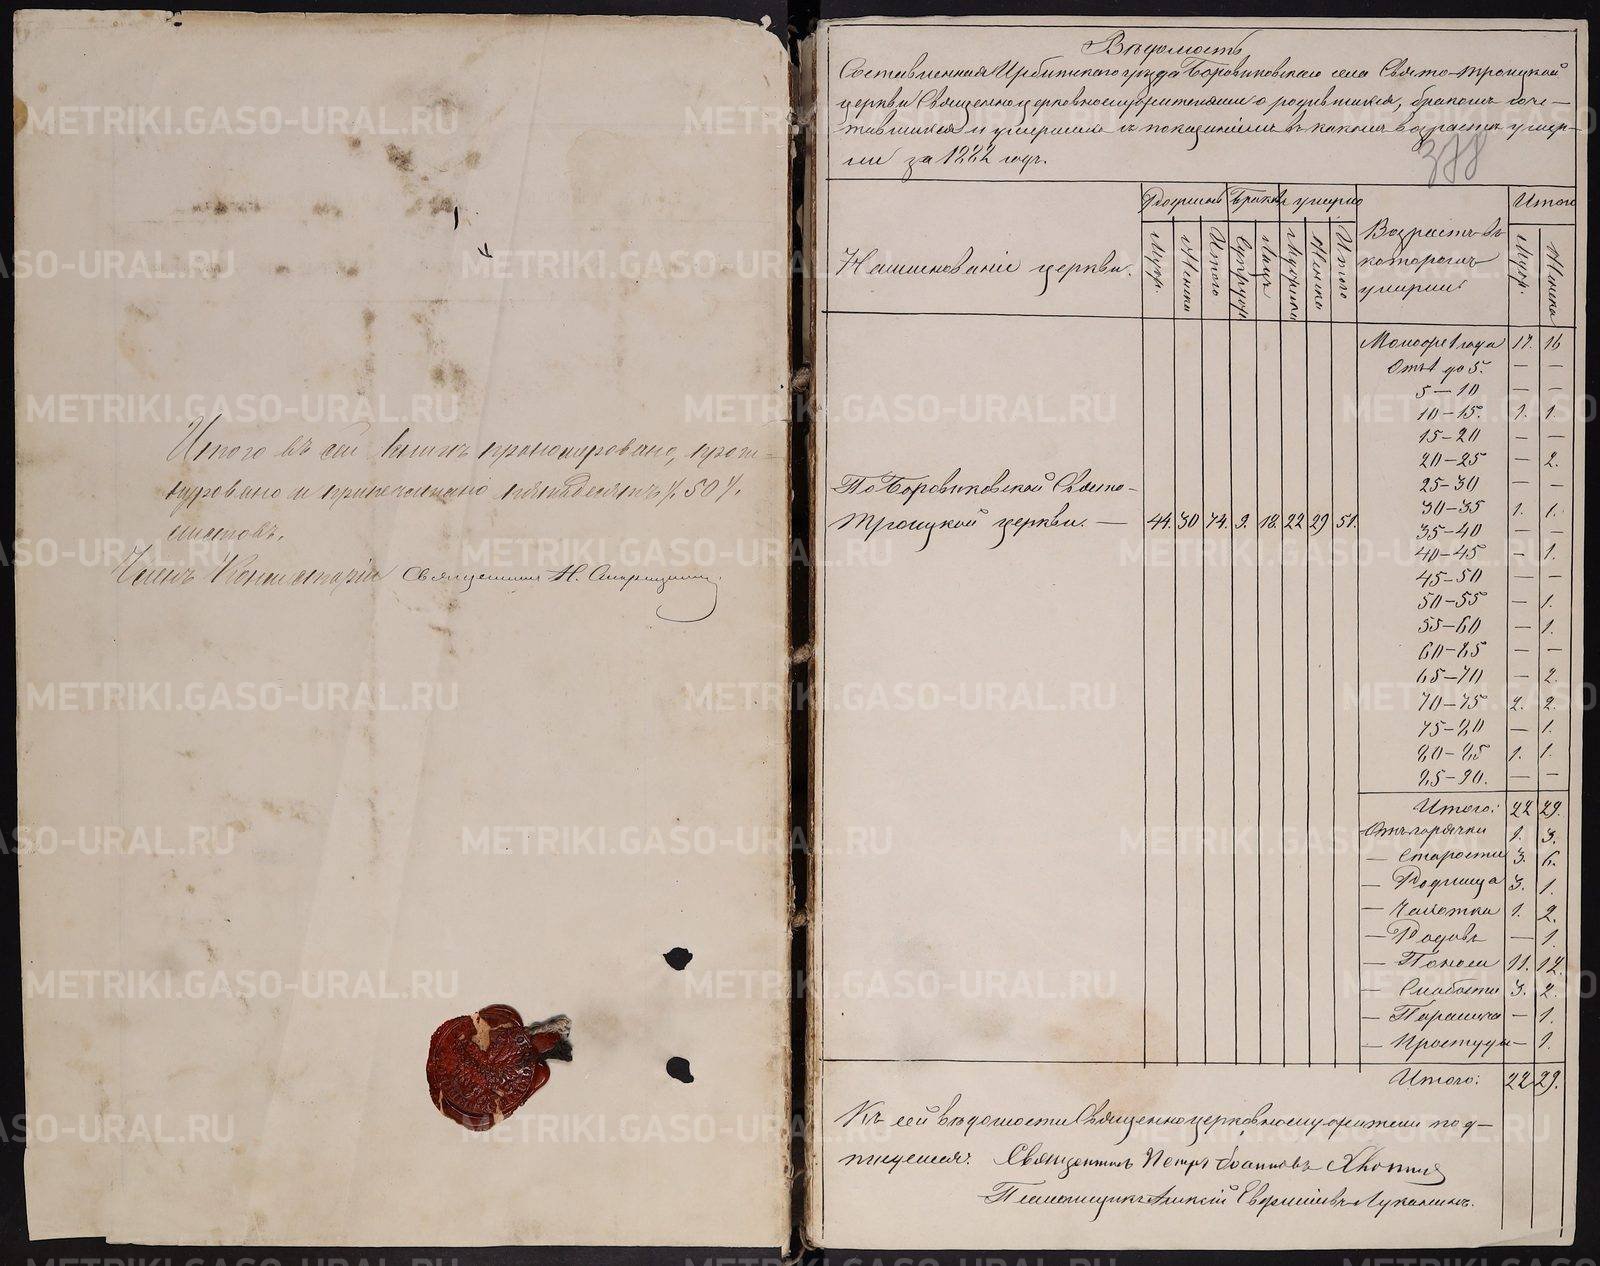 Итого въ сей книгѣ прономеровано, прошну-
ровано и припечатано пятьдесятъ /:50:/
листовъ.
Членъ Консисторіи Священникъ Н.
Вѣдомость
Составленная Ирбитскаго уѣзда Боровиковскаго села Свято-Троицкой
церкви Священноцерковнослужителями о родившихся, бракомъ соче-
тавшихся и умершихъ съ показаніемъ въ какомъ возрастѣ умер-
ли за 1882 годъ.
378
Наименованіе церкви.
Родилось
Браков
умерло
Возрастъ въ
которомъ
умерли:
Итого
Муж.
Женска
Итого
Супруж.
Лицъ
Мужска
Женска
Итого
Муж.
Женска
По Боровиковской Свято-
Троицкой церкви. — 44. 30 74. 9. 18. 22 29 51.
Моложе 1 года 17. 16
Отъ 1 до 5. — —
5–10 — —
10–15. 1. 1.
15–20 — —
20–25 — 2.
25–30 — —
30–35 1. 1.
35–40 — —
40–45 — 1.
45–50 — —
50–55 — 1.
55–60 — 1.
60–65 — —
65–70 — 2.
70–75 2. 2.
75–80 — 1.
80–85 1. 1.
85–90. — —
Итого: 22 29.
Отъ горячки 1. 3.
— Старости 3. 6.
— Родимца 3. 1.
— Чахотки 1. 2.
— Родовъ — 1.
— Поноса 11. 12.
— Слабости 3. 2.
— Паралича — 1.
— Простуды — 1.
Итого: 22 29.
Къ сей вѣдомости Священноцерковнослужители под-
писуемся: Священникъ Петръ Іоанновъ
Псаломщикъ Алексій Евфиміевъ Лукинъ.
METRIKI.GASO-URAL.RU